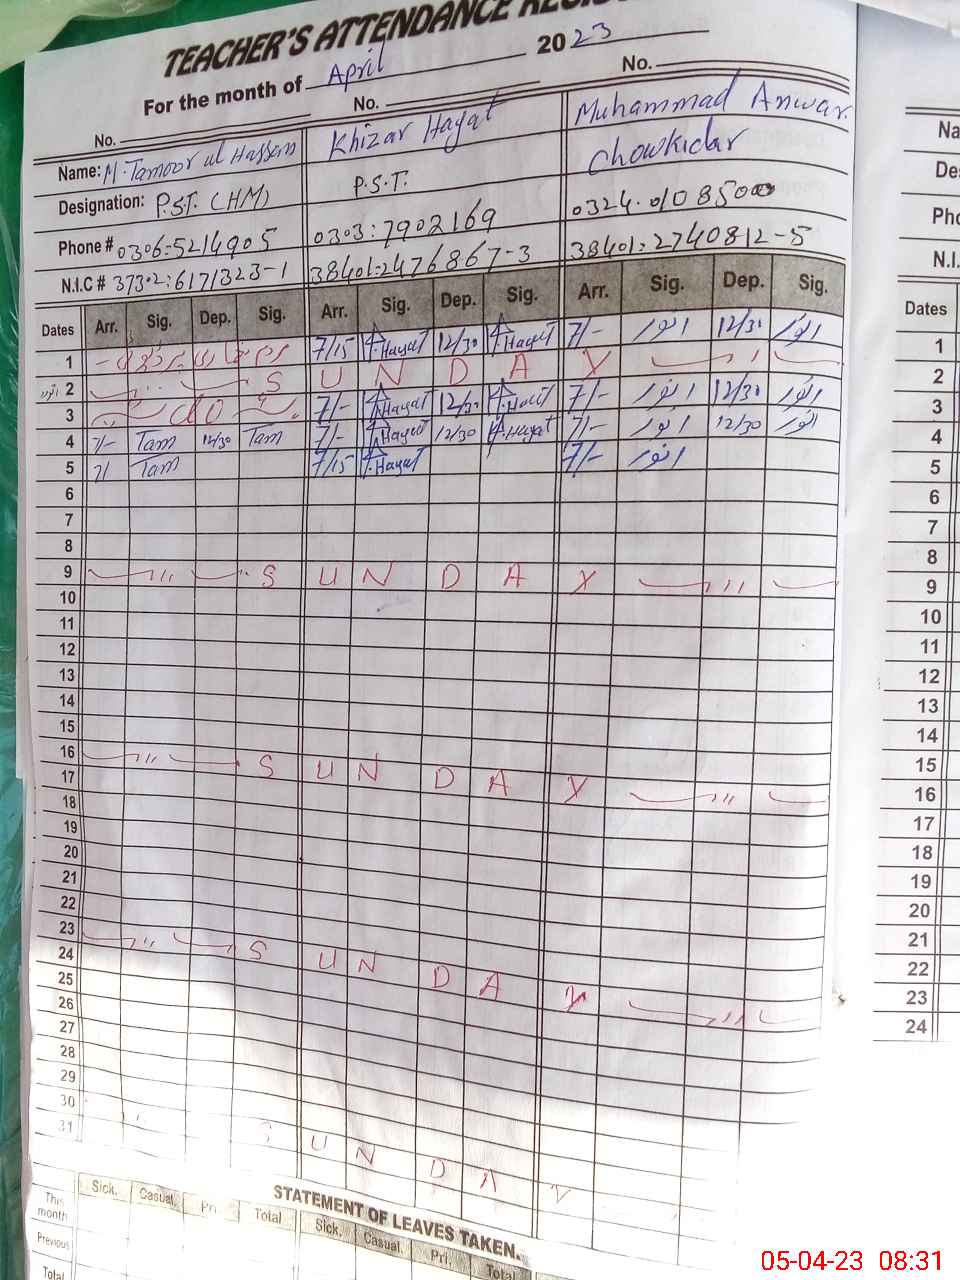 TEACHER'S ATTENDANCE
For the month of April 2023
No. No. No.
Name: M. Tamoor ul Hassan Khizar Hayat Muhammad Anwar
Designation: P.S.T. (HM) P.S.T. Chowkidar
Phone # 0306:5214905 0303:7902169 0324.0108500
N.I.C # 37302:6171323-1 38401:2476867-3 38401:2740812-5
Dates Arr. Sig. Dep. Sig. Arr. Sig. Dep. Sig. Arr. Sig. Dep. Sig.
1 7/15 Hayat 12/30 Hayat 7/- انور 12/30 انور
2 S U N D A Y
3 do 7/- Hayat 12/30 Hayat 7/- انور 12/30 انور
4 7/- Tam 12/30 Tam 7/- Hayat 12/30 Hayat 7/- انور 12/30 انور
5 7/ Tam 7/15 Hayat 7/- انور
6
7
8
9 S U N D A Y
10
11
12
13
14
15
16 S U N D A Y
17
18
19
20
21
22
23 S U N D A Y
24
25
26
27
28
29
30 S U N D A Y
31
STATEMENT OF LEAVES TAKEN.
Sick. Casual. Pri. Total Sick. Casual. Pri. Total
This month
Previous
Total
Na
De
Pho
N.I.
Dates
1
2
3
4
5
6
7
8
9
10
11
12
13
14
15
16
17
18
19
20
21
22
23
24
05-04-23 08:31